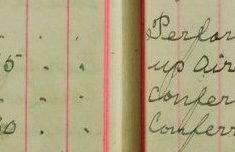 Perfor
5 . . up air
. . . Confer
0 . . Conferr